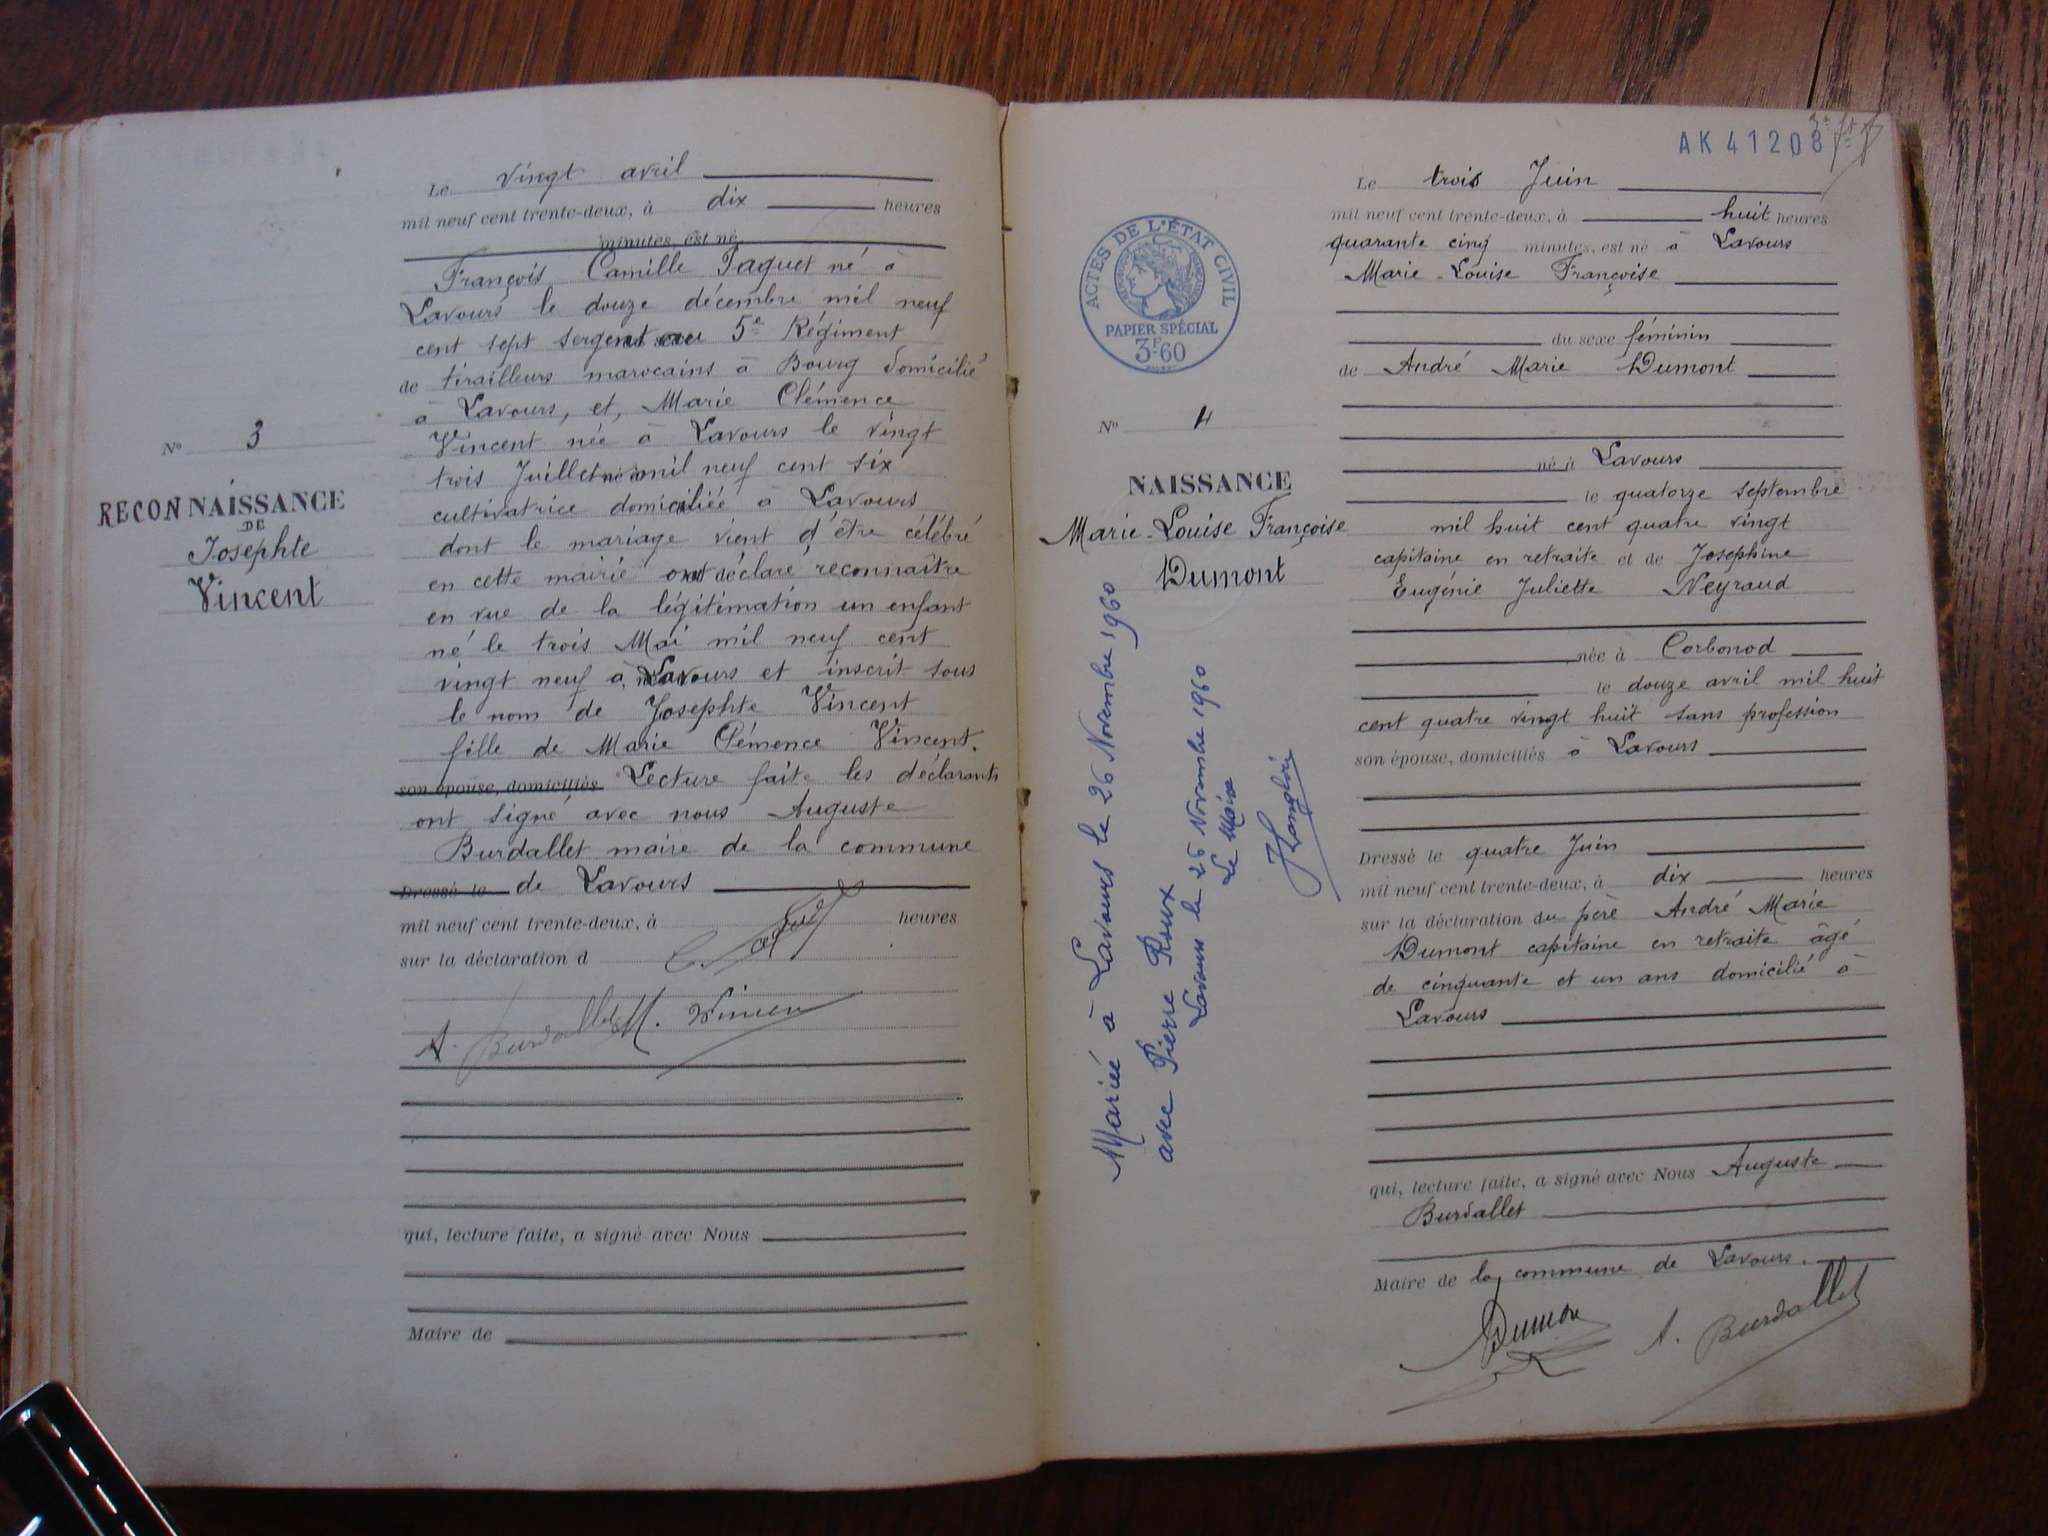 Le vingt avril
mil neuf cent trente-deux, à dix heures
minutes, est né
François Camille Jaquet né à
Lavours le douze décembre mil neuf
cent sept sergent au 5e Régiment
de tirailleurs marocains à Bourg domicilié
à Lavours, et, Marie Clémence
Vincent née à Lavours le vingt
trois Juillet mil neuf cent six
cultivatrice domiciliée à Lavours
dont le mariage vient d'être célébré
en cette mairie ont déclaré reconnaître
en vue de la légitimation un enfant
né le trois Mai mil neuf cent
vingt neuf à Lavours et inscrit sous
le nom de Josephte Vincent
fille de Marie Clémence Vincent.
son épouse, domiciliés Lecture faite les déclarants
ont signé avec nous Auguste
Burdallet maire de la commune
Dressé le de Lavours
mil neuf cent trente-deux, à heures
sur la déclaration d
A. Burdallet M. Vincent
qui, lecture faite, a signé avec Nous
Maire de
No 3
RECONNAISSANCE
DE
Josephte
Vincent
AK 41208
ACTES DE L'ÉTAT CIVIL
PAPIER SPÉCIAL
3F.60
No 4
NAISSANCE
Marie-Louise Françoise
Dumont
Mariée à Lavours le 26 Novembre 1960
avec Pierre Roux
Lavours le 26 Novembre 1960
Le Maire
Le trois Juin
mil neuf cent trente-deux, à huit heures
quarante cinq minutes, est né à Lavours
Marie-Louise Françoise
du sexe féminin
de André Marie Dumont
né à Lavours
le quatorze septembre
mil huit cent quatre vingt
capitaine en retraite et de Josephine
Eugénie Juliette Neyraud
née à Corbonod
le douze avril mil huit
cent quatre vingt huit sans profession
son épouse, domiciliés à Lavours
Dressé le quatre Juin
mil neuf cent trente-deux, à dix heures
sur la déclaration du père André Marie
Dumont capitaine en retraite âgé
de cinquante et un ans domicilié à
Lavours
qui, lecture faite, a signé avec Nous Auguste
Burdallet
Maire de la commune de Lavours.
Dumont A. Burdallet